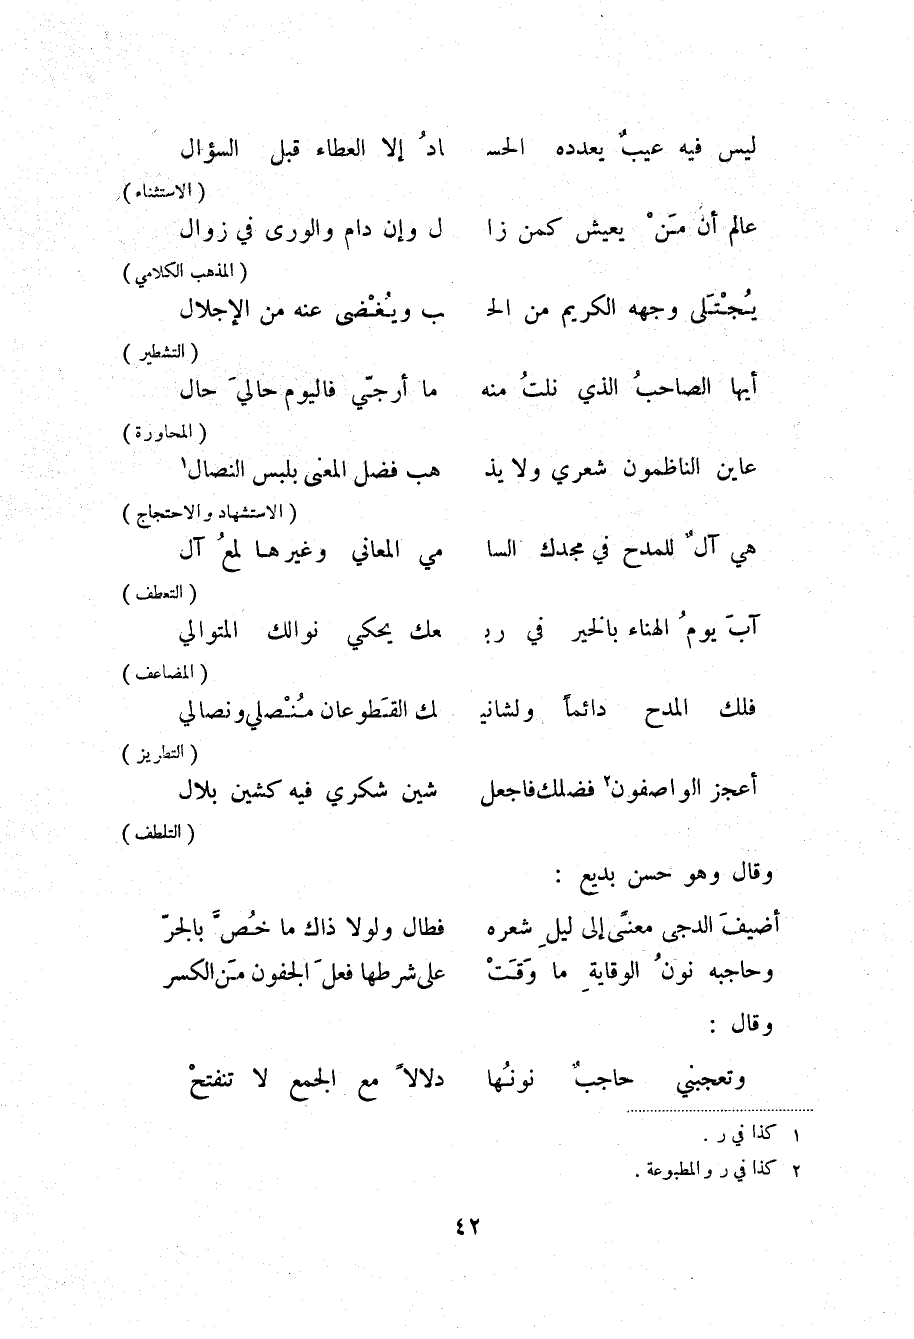 ليس فيه عيبٌ يعدده الحسـ ـادُ إلا العطاء قبل السؤال
( الاستثناء )
عالم أن مَنْ يعيش كمن زا ل وإن دام والورى في زوال
( المذهب الكلامي )
يُجْتَلى وجهه الكريم من الحـ ـب ويُغْضى عنه من الإجلال
( التشطير )
أيها الصاحبُ الذي نلتُ منه ما أرجّي فاليوم حاليَ حال
( المحاورة )
عاين الناظمون شعري ولا يذ هب فضل المعنى بلبس النصال١
( الاستشهاد والاحتجاج )
هي آلٌ للمدح في مجدك السا مي المعاني وغيرها لمعُ آل
( التعطف )
آبَ يومُ الهناء بالخير في ربـ ـعك يحكي نوالك المتوالي
( المضاعف )
فلك المدح دائماً ولشانيـ ـك القَطوعان مُنْصلي ونصالي
( التطريز )
أعجز الواصفون٢ فضلك فاجعل شين شكري فيه كشين بلال
( التلطف )
وقال وهو حسن بديع :
أضيفَ الدجى معنًى إلى ليلِ شعره فطال ولولا ذاك ما خُصَّ بالجرّ
وحاجبه نونُ الوقايةِ ما وَقَتْ على شرطها فعلَ الجفون مَن الكسر
وقال :
وتعجبني حاجبٌ نونُها دلالاً مع الجمع لا تنفتحْ
١ كذا في ر .
٢ كذا في ر والمطبوعة .
٤٢